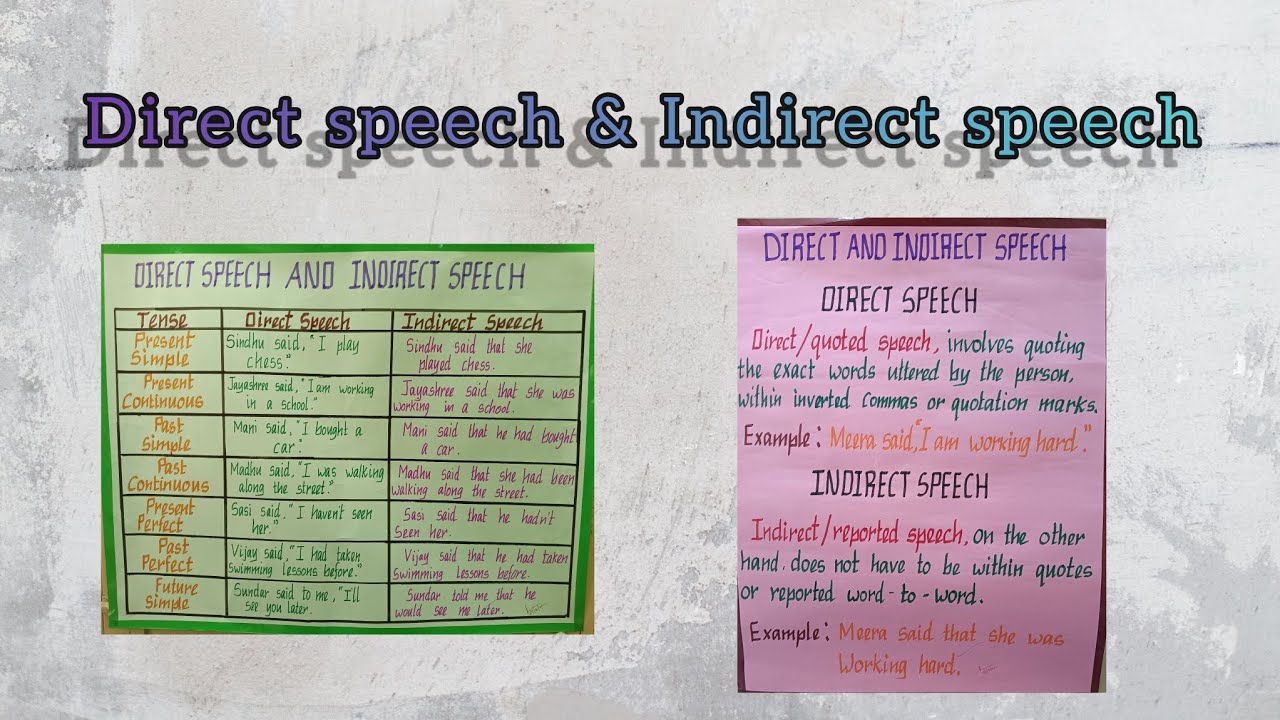 Direct speech & Indirect speech
DIRECT SPEECH AND INDIRECT SPEECH
Tense Direct Speech Indirect Speech
Present Simple
Sindhu said, "I play
chess."
Sindhu said that she
played chess.
Present Continuous
Jayashree said, "I am working
in a school."
Jayashree said that she was
working in a school.
Past Simple
Mani said, "I bought a
car."
Mani said that he had bought
a car.
Past Continuous
Madhu said, "I was walking
along the street."
Madhu said that she had been
walking along the street.
Present Perfect
Sasi said, "I haven't seen
her."
Sasi said that he hadn't
seen her.
Past Perfect
Vijay said, "I had taken
swimming lessons before."
Vijay said that he had taken
swimming lessons before.
Future Simple
Sundar said to me, "I'll
see you later.
Sundar told me that he
would see me later.
DIRECT AND INDIRECT SPEECH
DIRECT SPEECH
Direct/quoted speech, involves quoting
the exact words uttered by the person,
within inverted commas or quotation marks.
Example: Meera said, "I am working hard."
INDIRECT SPEECH
Indirect/reported speech, on the other
hand. does not have to be within quotes
or reported word-to-word.
Example: Meera said that she was
Working hard.